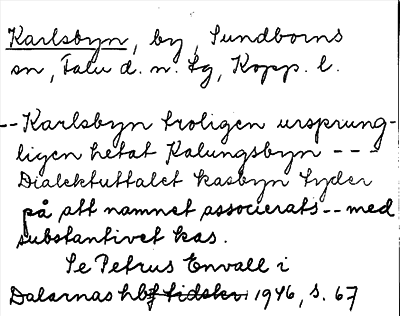 Karlsbyn, by, Sundborns
sn, Falu d. n. lg, Kopp. l.
-- Karlsbyn troligen ursprung-
ligen hetat Kalungsbyn ---
Dialektuttalet kasbyn tyder
på att namnet associerats -- med
substantivet kas.
Se Petrus Envall i
Dalarnas hbf tidskr. 1946, s. 67